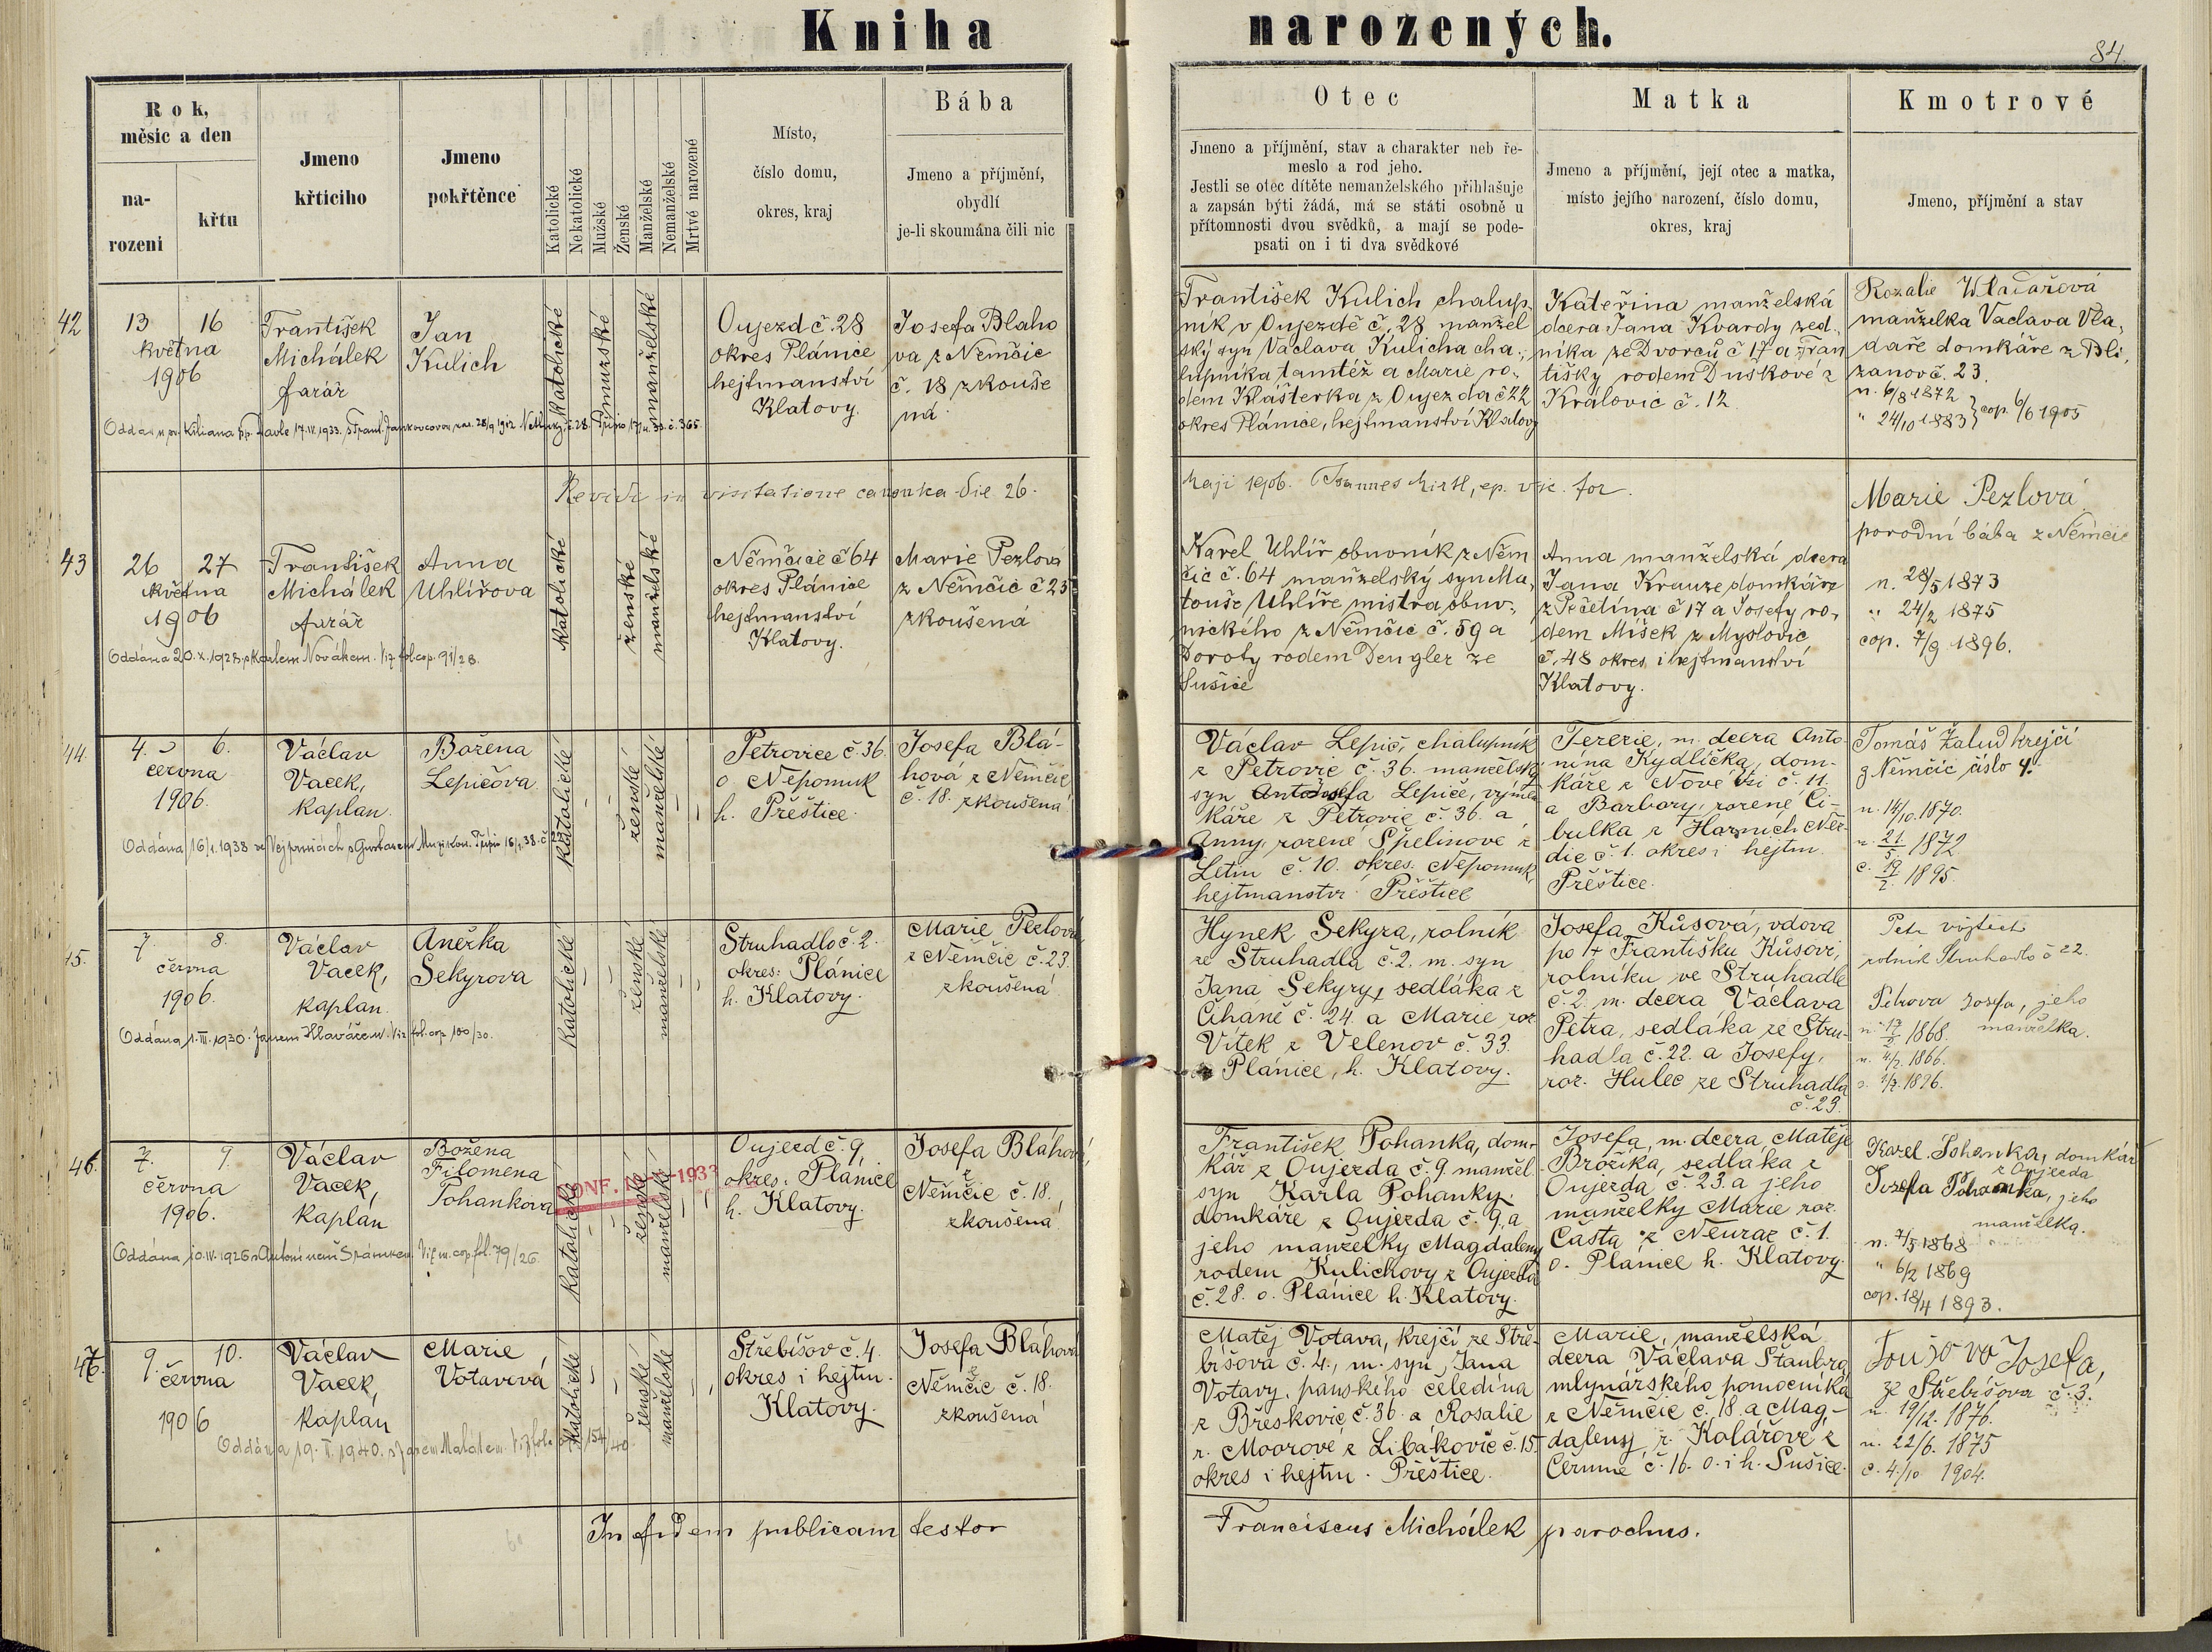 Kniha narozených.
84.
Rok,
měsíc a den
na-
rozeni
křtu
Jmeno
křticího
Jmeno
pokřtěnce
Katolické
Nekatolické
Mužské
Ženské
Manželské
Nemanželské
Mrtvé narozené
Místo,
číslo domu,
okres, kraj
Bába
Jmeno a příjmění,
obydlí
je-li skoumána čili nic
Otec
Jmeno a příjmění, stav a charakter neb ře-
meslo a rod jeho.
Jestli se otec dítěte nemanželského přihlašuje
a zapsán býti žádá, má se státi osobně u
přítomnosti dvou svědků, a mají se pode-
psati on i ti dva svědkové
Matka
Jmeno a příjmění, její otec a matka,
místo jejího narození, číslo domu,
okres, kraj
Kmotrové
Jmeno, příjmění a stav
42
13 16
května
1906
František
Michálek
farář
Jan
Kulich
katolické
mužské
manželské
Oujezd č. 28
okres Plánice
hejtmanství
Klatovy.
Josefa Blaho
va z Němčic
č. 18 zkouše
ná
František Kulich chalup-
ník v Oujezdě č. 28 manžel
ský syn Václava Kulicha cha-
lupníka tamtéž a Marie ro-
dem Klášterka z Oujezda č 22
okres Plánice, hejtmanství Klatovy
Kateřina manželská
dcera Jana Kvardy zed-
níka ze Dvorců č 17 a Fran
tišky rodem Duskové z
Královic č. 12.
Rozalie Wladařová
manželka Vaclava Vla-
daře domkáře z Bli-
zanov č. 23.
n. 6/8 1872
" 24/10 1883 } cop. 6/6 1905
Oddán 17.IV.1933.
in visitatione canonica die 26.
Maji 1906. Joannes
43
26 27
května
1906
František
Michálek
farář
Anna
Uhlířova
katolické
ženské
manželské
Němčice č 64
okres Plánice
hejtmanství
Klatovy.
Marie Pezlova
z Němčic č 23
zkoušená
Karel Uhlíř obuvník z Něm
čic č. 64 manželský syn Ma-
touše Uhlíře mistra obuv-
nického z Němčic č. 59 a
Doroty rodem Dengler ze
Sušice
Anna manželská dcera
Jana Krauze domkáře
z Pečetína č 17 a Josefy ro-
dem Míšek z Myslovic
č. 48 okres i hejtmanství
Klatovy.
Marie Pezlová
porodní bába z Němčic
n. 28/5 1873
" 24/2 1875
cop. 7/9 1896.
Oddána 20.X.1928 s Karlem Novákem. Viz fol. cop. 91/28.
44.
4. 6.
června
1906.
Václav
Vacek,
kaplan.
Božena
Lepičova
katolické
ženské
manželské
Petrovice č. 36.
o Nepomuk
h. Přěštice.
Josefa Blá-
hová z Němčic
č. 18. zkoušena
Václav Lepič, chalupník
z Petrovic č. 36. manželský
káře z Petrovic č. 36. a
Anny, rozené Špelinové z
Letin č. 10. okres. Nepomuk,
hejtmanství Přěštice
Terezie, m. dcera Anto-
nína Kydlička, dom-
káře z Nové Vsi č. 11.
a Barbory, rozené Ci-
bulka z Horních Něr-
dic č. 1. okres i hejtm.
Přěštice.
Tomáš Žalud krejčí
z Němčic číslo 4.
n. 14/10. 1870.
n. 21/5 1872
c. 19/2. 1895.
Oddána 16/1.1938
7. 8.
června
1906.
Václav
Vacek,
kaplan.
Anežka
Sekyrova
katolické
ženské
manželské
Struhadlo č. 2.
okres: Plánice
h. Klatovy.
Marie Pezlová
z Němčic č. 23.
zkoušená
Hynek Sekyra, rolník
ze Struhadla č. 2. m. syn
Jana Sekyry, sedláka z
Číhaně č. 24. a Marie roz
Vítek z Velenov č. 33.
Plánice, h. Klatovy.
Josefa Kůsová, vdova
po + Františku Kůsovi,
rolníku ve Struhadle
č. 2. m. dcera Václava
Petra, sedláka ze Stru-
hadla č. 22. a Josefy,
roz. Hulec ze Struhadla
č. 23.
Petr Vojtěch
rolník Struhadlo č 22.
Petrova Josefa, jeho
manželka.
1868.
1866.
1896.
Oddána 1.III.1930. Janem Hlaváčem. Viz fol. cop 100/30.
46.
7. 9.
června
1906.
Václav
Vacek,
kaplán
Božena
Filomena
Pohankova
katolické
ženské
manželské
Oujezd č. 9.
okres: Plánice
h. Klatovy.
Josefa Bláhová,
z
Němčic č. 18.
zkoušena
František Pohanka, dom-
kář z Oujezda č. 9. manžel
syn Karla Pohanky.
domkáře z Oujezda č. 9. a
jeho manželky Magdaleny
rodem Kulichovy z Oujezda
č. 28. o. Plánice h. Klatovy.
Josefa, m. dcera Matěje
Brožíka, sedláka z
Oujezda č. 23. a jeho
manželky Marie roz.
Častá z Neuraz č. 1.
o. Plánice h. Klatovy.
Karel Pohanka, domkář
z Oujezda
Josefa Pohanka, jeho
manželka.
n. 7/5 1868
" 6/2 1869
cop. 18/4 1893.
Oddána 10.IV.1926 s Antonínem Viz m. cop. fol. 79/26
9. 10.
června
1906
Václav
Vacek,
kaplán
Marie
Votavová
katolické
ženské
manželské
Střebišov č. 4.
okres i hejtm.
Klatovy.
Josefa Bláhová
z
Němčic č. 18.
zkoušená
Matěj Votava, krejčí ze Stře-
bišova č. 4., m. syn Jana
Votavy, panského čeledína
z Břeskovic č. 36. a Rosalie
r. Moorové z Libákovic č. 15.
okres i hejtm. Přěštice.
Marie, manželská
dcera Václava Štanbra
mlynářského pomocníka
z Němčic č. 18. a Mag-
daleny r. Kolářové z
Čermné č. 16. o. i h. Sušice.
Josefa,
ze Střebišova č. 3.
n. 19/12. 1876.
n. 22/6. 1875
c. 4./10 1904.
Oddána 19. 1940. s Malátem.
In fidem publicam testor
Franciscus Michálek parochus.